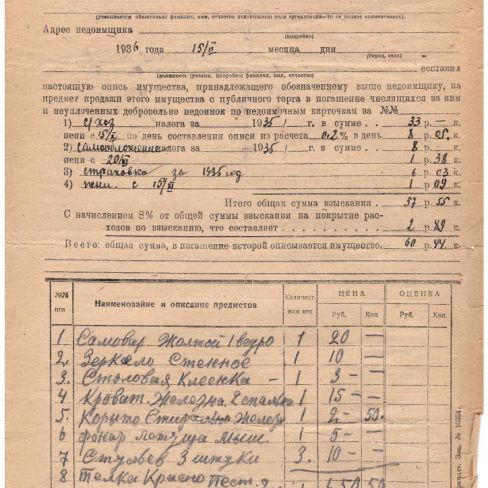 (указывается обязательно фамилия, имя, отчество недоимщика; если организация—то ее полное наименование).
Адрес недоимщика
(подробно)
1936 года 15/II месяца дня
(город, село)
составил
(должность (указать подробно) фамилия, имя, отчество)
настоящую опись имущества, принадлежащего обозначенному выше недоимщику, на
предмет продажи этого имущества с публичного торга в погашение числящихся за ним
и неуплоченных добровольно недоимок по недоимочным карточкам за №№
1) с/хоз налога за 1935 г. в сумме 33 р. — к.
пени с 15/ по день составления описи из расчета 0.2% в день 8 р. 05 к.
2) Самообложение налога за 1935 г. в сумме 8 р. — к.
пени с 20/ 1 р. 38 к.
3) страховка за 1935 год 6 р. 03 к.
4) пени с 15/ 1 р. 09 к.
Итого общая сумма взыскания 57 р. 55 к.
С начислением 8% от общей суммы взыскания на покрытие рас-
ходов по взысканию, что составляет 2 р. 89 к.
Всего: общая сумма, в погашение которой описывается имущество. 60 р. 44 к.
№№ п/п Наименование и описание предметов Количест или вес ЦЕНА ОЦЕНКА
Руб. Коп Руб. Коп.
1 Самовар Жолтой 1 ведро 1 20 —
2. Зеркало Стенное 1 10 —
3. Столовая Клеенка — 1 3 —
4 Кроват. Железна 2 спальн 1 15 —
5. Корыто Стирално Желез 1 2 - 50.
6 фонар Летуща мыш. 1 5 —
7 Стульев 3 штуки 3. 10 —
8 Телка Красно Пестя 1 50